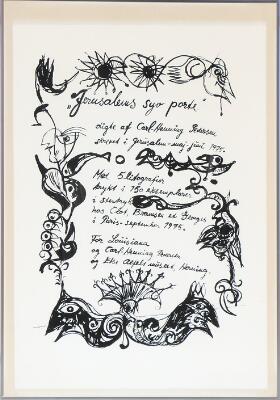 "Jerusalems syv porte"
digte af Carl-Henning Pedersen
skrevet i Jerusalem - maj - juni, 1975.
Med 5 litografier
trykt i 150 eksemplarer
i stentryk
hos Clot, Bramsen et Georges
i Paris - september, 1975.
For Louisiana
og Carl-Henning Pedersen
og Else Alfelts museet, Herning.